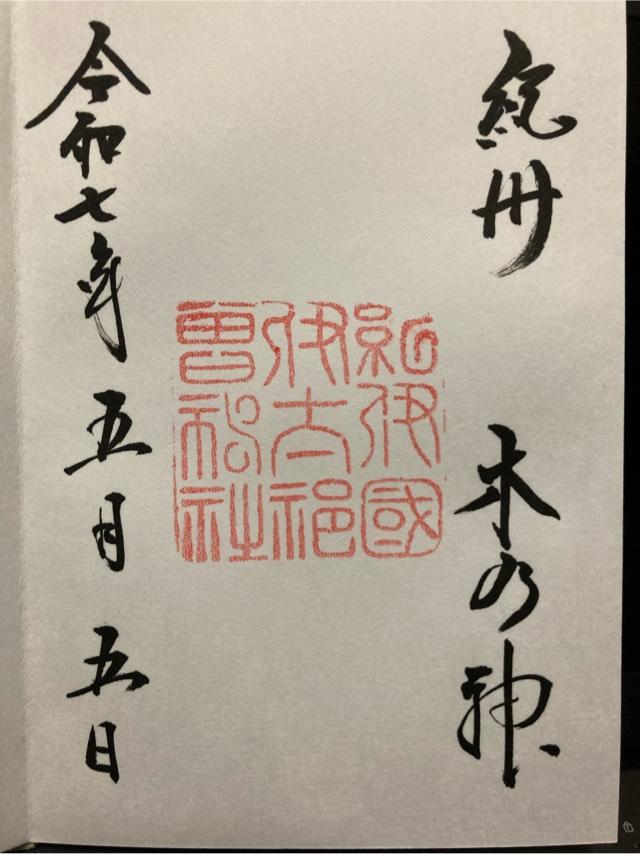 紀州 木の神
紀伊國
伊太祁
曽神社
令和七年 五月 五日